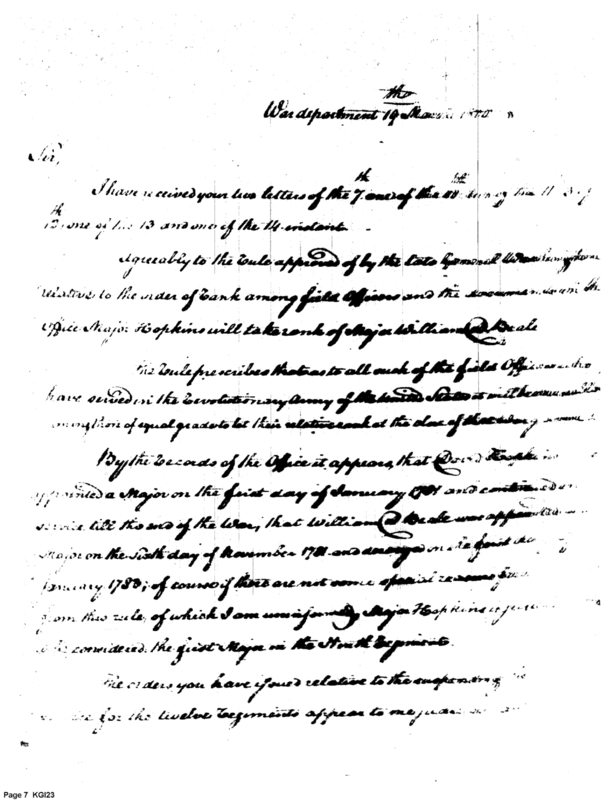 th
War department 19 March 1800
Sir,
th
I have received your two letters of the 7. one of the
th
13. one of the 13 and one of the 14 instant.
Agreeably to the Rule approved of by the late General Washington
relative to the order of Rank among field Officers and the documents in
Office Major Hopkins will take rank of Major William D Beale
The Rule prescribes that as to all such of the field Officers who
have served in the Revolutionary Army of the United States it will be
among them of equal grade to let their relative rank at the close of that War
By the Records of the Office it appears, that David Hopkins
appointed a Major on the first day of January 1781 and continued in
service till the end of the War; that William D Beale was appointed
Major on the Sixth day of November 1781 and deranged on the first
January 1783; of course if there are not some special reasons
from this rule, of which I am uninformed, Major Hopkins
be considered the first Major in the Ninth Regiment.
The orders you have issued relative to the suspending
for the twelve Regiments appear to me
Page 7 KGI23